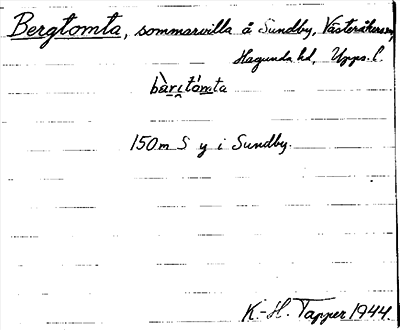 Bergtomta, sommarvilla å Sundby, Västeråkers sn,
Hagunda hd, Upps. l.
bàrι̯tómta
150 m S y i Sundby.
K.-H. Tapper 1944.